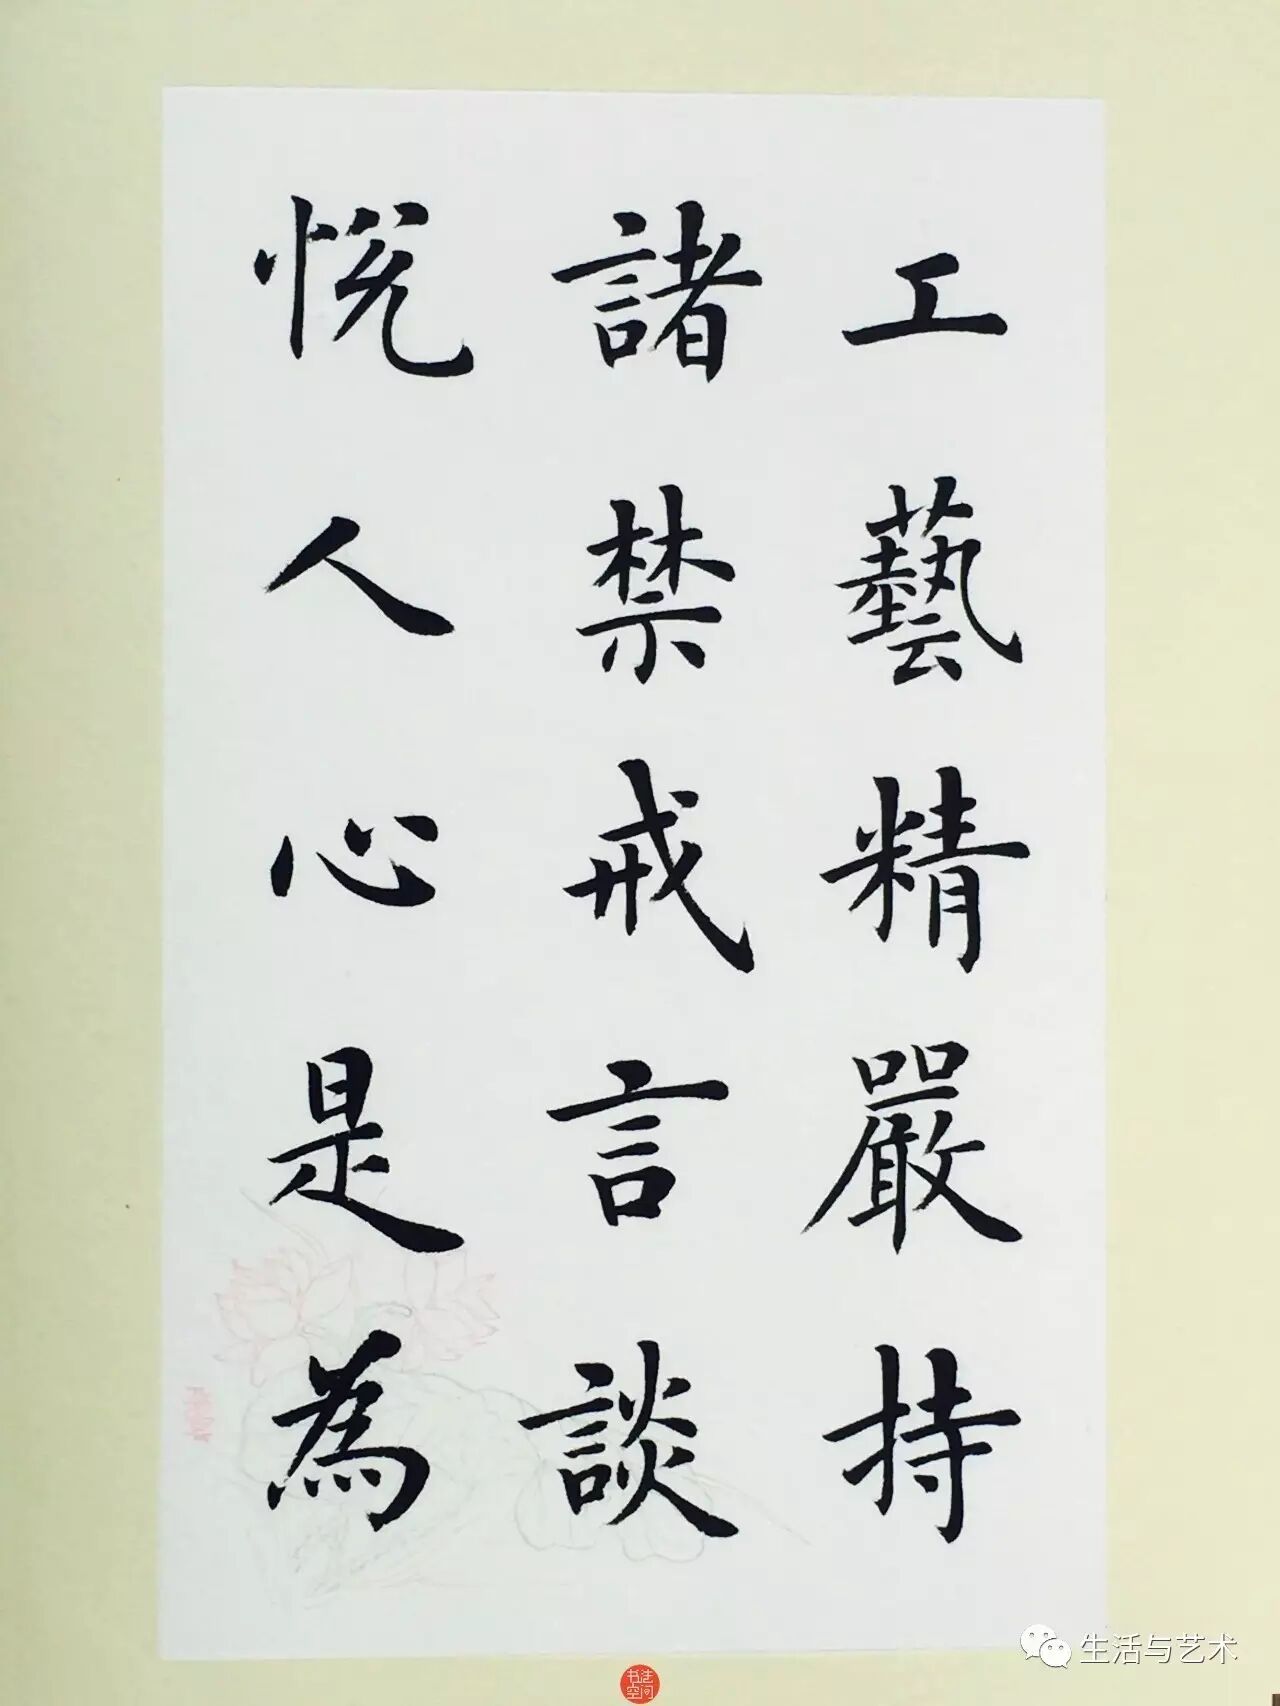 工藝精嚴持
諸禁戒言談
悅人心是為
生活与艺术
书法空间